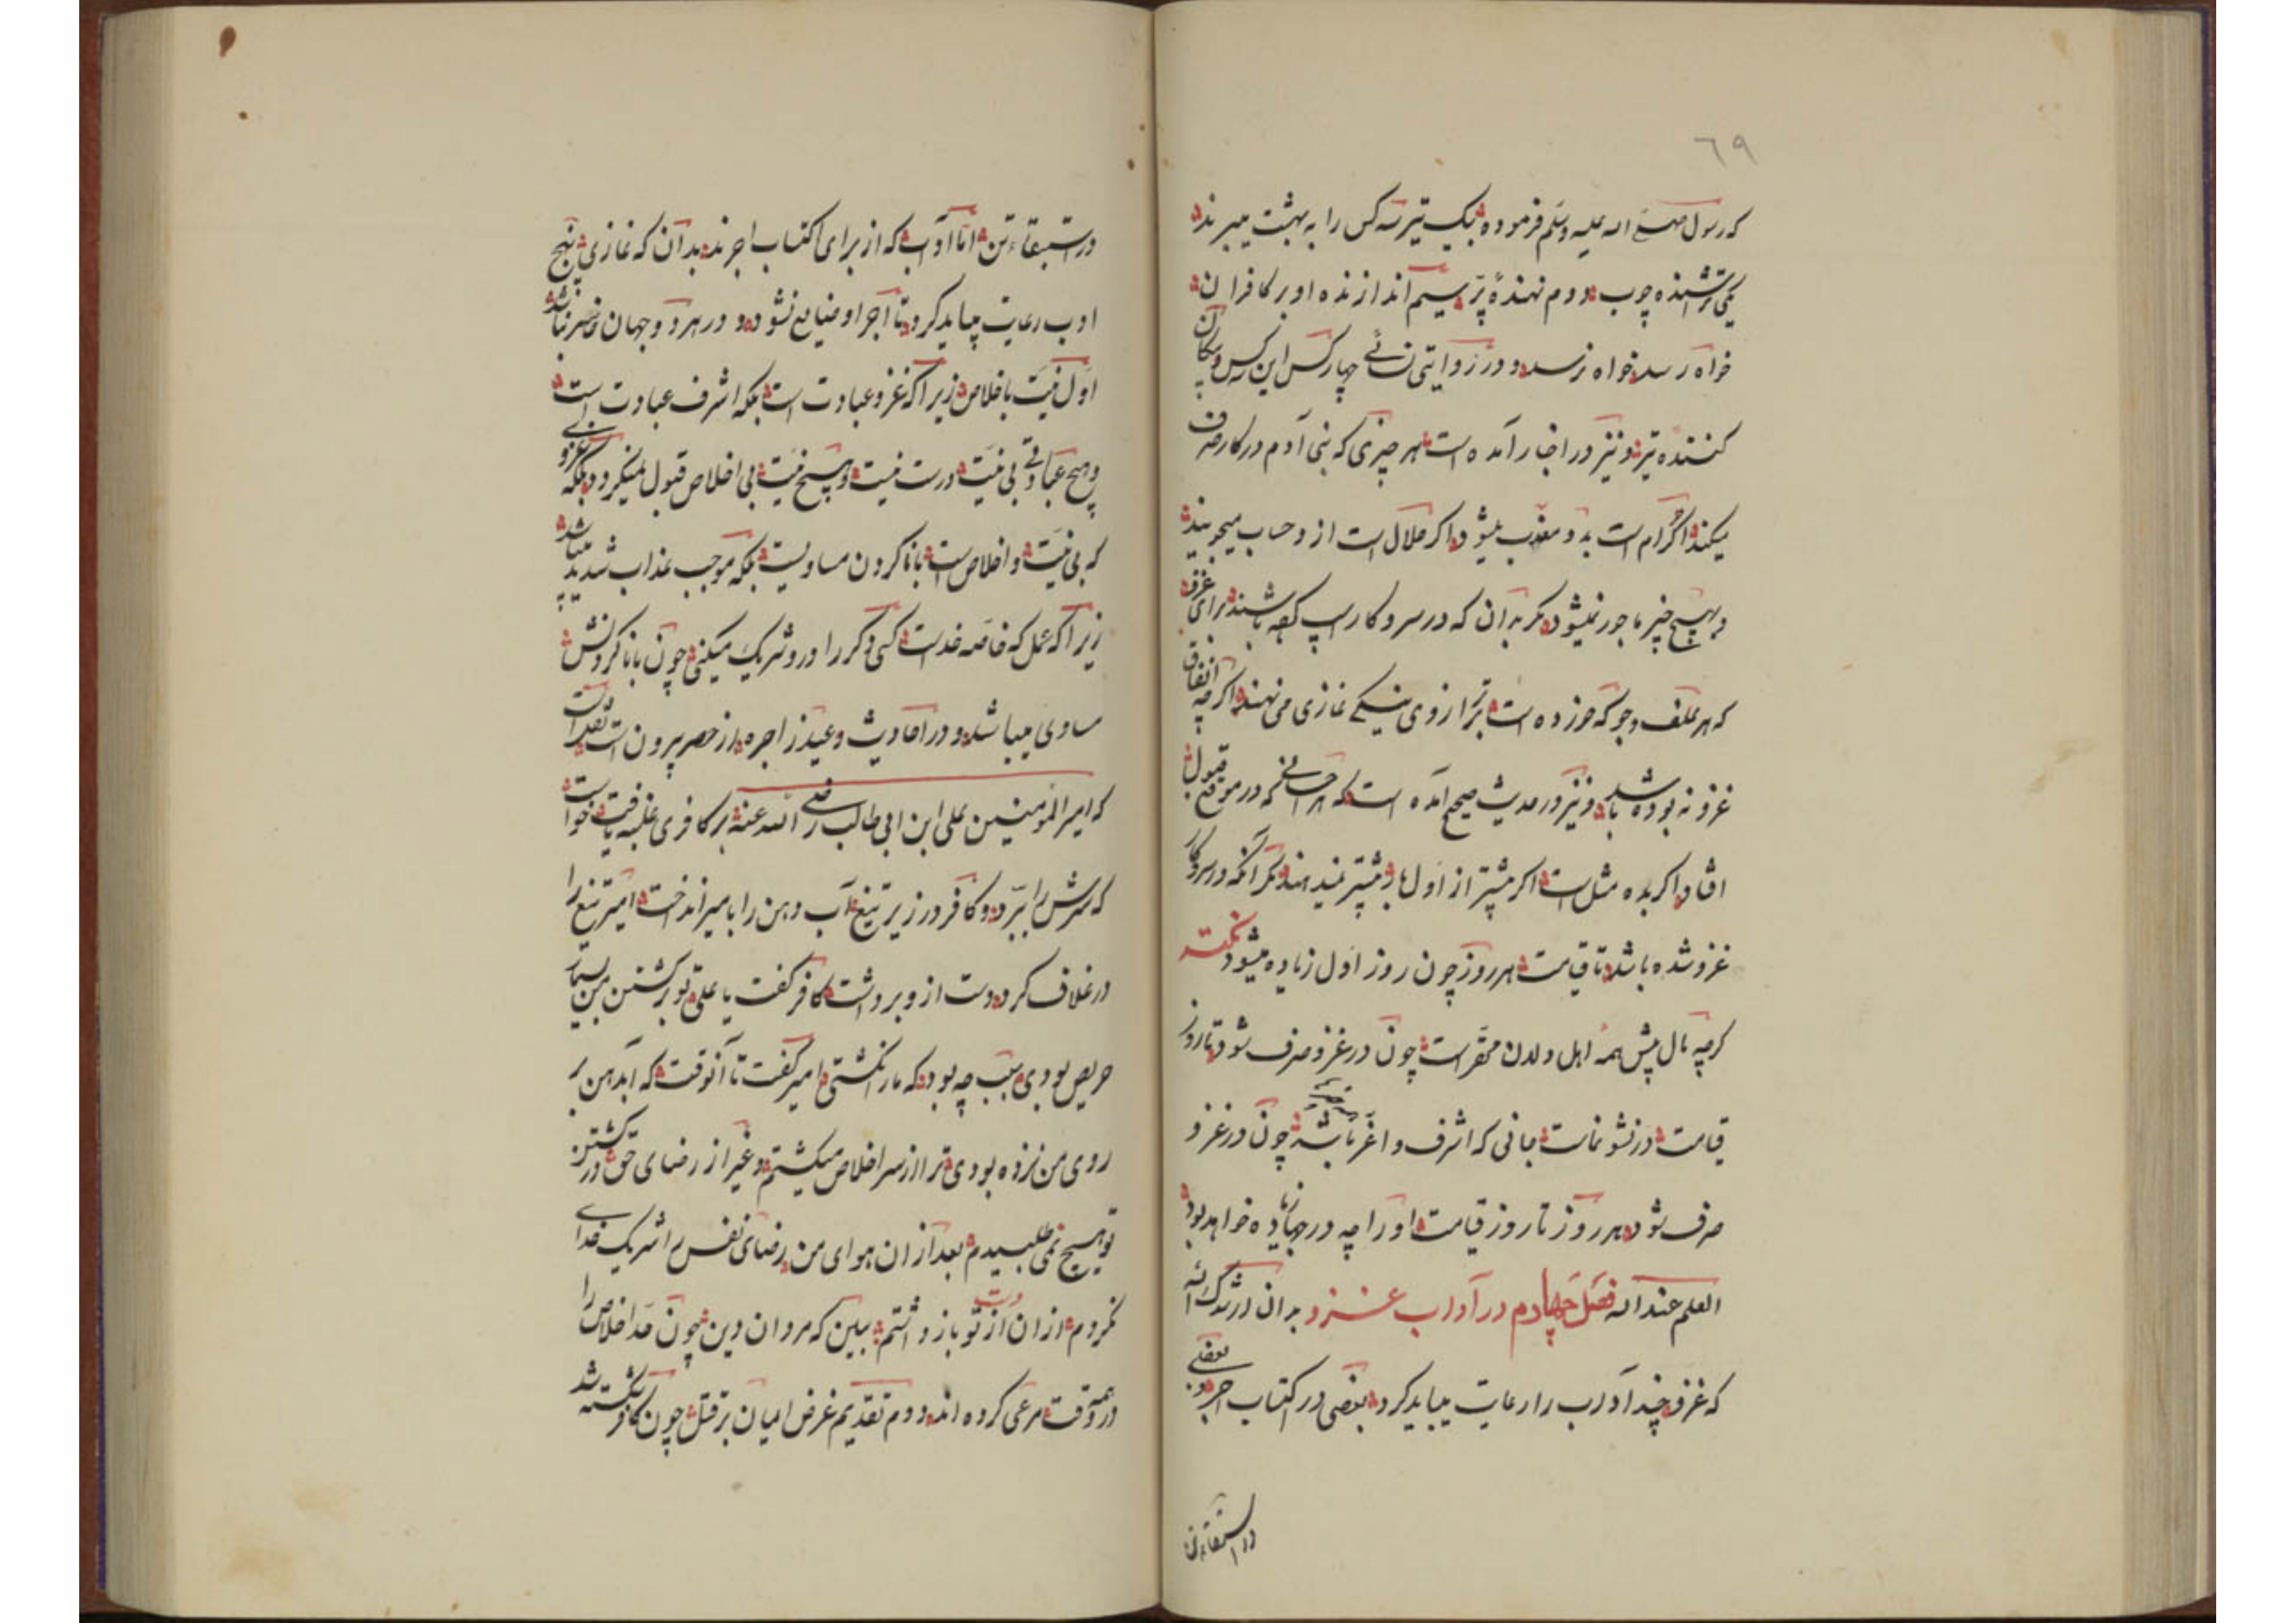 ٦٩
که رسول صلی الله علیه وسلم فرموده بیک تیر سه کس را به بهشت میبرند
یکی تراشنده چوب دوم نهندهٔ پر سیم اندازنده او بر کافران
خواه رسد خواه نرسد و در روایتی چهار کس این سه کس و پیکان
کننده تیر و نیز در اخبار آمده است هر چیزی که بنی آدم در کار صرف
میکند اکر حرام است بدو معذب میشود واکر حلال است از و حساب میجویند
وبهیچ چیز ماجور نمیشود مکر به آن که در سر و کار اسپ که باشند برای غزو
که هر علف وجو که خورده است در ترازوی نیکی غازی می نهند اکرچه اتفاق
غزو نه بوده باشد و نیز در حدیث صحیح آمده است که هر که در موقع قبول
افتاد اکر بده مثل است اکر بیشتر از اول ها بیشتر نمیدهند مکر آنکه در سر و کار
غزو شده باشد تا قیامت هر روز چون روز اول زیاده میشود نکته
کرچه مال پیش همهٔ اهل و لدن محقر است چون در غزو صرف شود تا روز
قیامت در نشو نماست جانی که اشرف و اعز باشد چون در غزو
صرف شود هر روز تا روز قیامت او را چه درجها زیاده خواهد بود
العلم عند الله فصل چهارم در آداب غزو بدان ارشدک الله
که غزو چند آداب را رعایت میباید کرد بعضی در اکتساب اجر و بعضی
در استبقاء تن
در استبقاء تن اما آداب که از برای اکتساب اجرند بدان که غازی پنج
ادب رعایت میباید کرد تا اجر او ضایع نشود و در هر دو جهان خاسر نباشد
اول نیت باخلاص زیرا که غزو عبادت است بلکه اشرف عبادت است
وهیچ عبادتی بی نیت درست نیست وهیچ نیت بی اخلاص قبول نمیکردد بلکه غزوی
که بی نیت و اخلاص است با ناکردن مساویست بلکه موجب عذاب شدید میباشد
زیرا که عمل که خاصه خداست کسی دکر را درو شریک میکنی چون با ناکردنش
مساوی میباشد و در احادیث وعید زاجره از حصر بیرون است نقل است
که امیر المؤمنین علی ابن ابی طالب رضی الله عنه بر کافری غلبه یافت خواست
که سرش را ببرد و کافر در زیر تیغ آب دهن را بامیر انداخت امیر تیغ را
در غلاف کرد و دست از و برداشت کافر کفت یا علی تو بر کشتن من بسیار
حریص بودی سبب چه بود که مارا نکشتی امیر کفت تا آنوقت که آب دهن بر
روی من نزده بودی ترا از سر اخلاص میکشتم و غیر از رضای حق در کشتن
تو هیچ نمی طلبیدم بعد از ان هوای من رضای نفس را شریک خدای
نکردم از ان از تو دست باز داشتم ببین که مردان دین چون حد اخلاص را
در همه وقت مرعی کرده اند دوم تقدیم عرض ایمان بر قتل چون کافر کشته شد